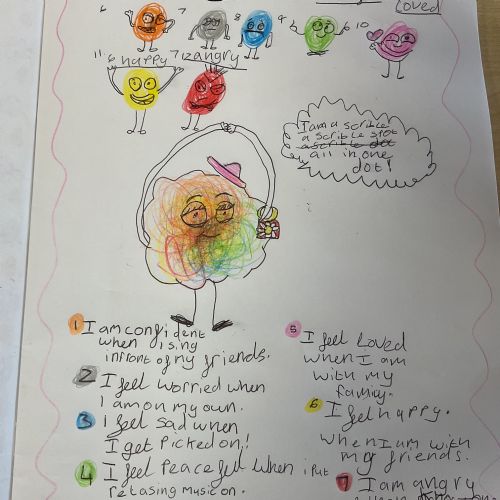 Loved
6 7 8 9 10
11 6 happy 7 12 angry
I am a scrible
a scrible spot
a scrible dot
all in one
dot!
1 I am confident
when I sing
infront of my friends.
2 I feel worried when
I am on my own.
3 I feel sad when
I get picked on!
4 I feel peaceful when I put
relasing music on.
5 I feel Loved
when I am
with my
family.
6 I feel happy.
when I am with
my friends.
7 I am angry